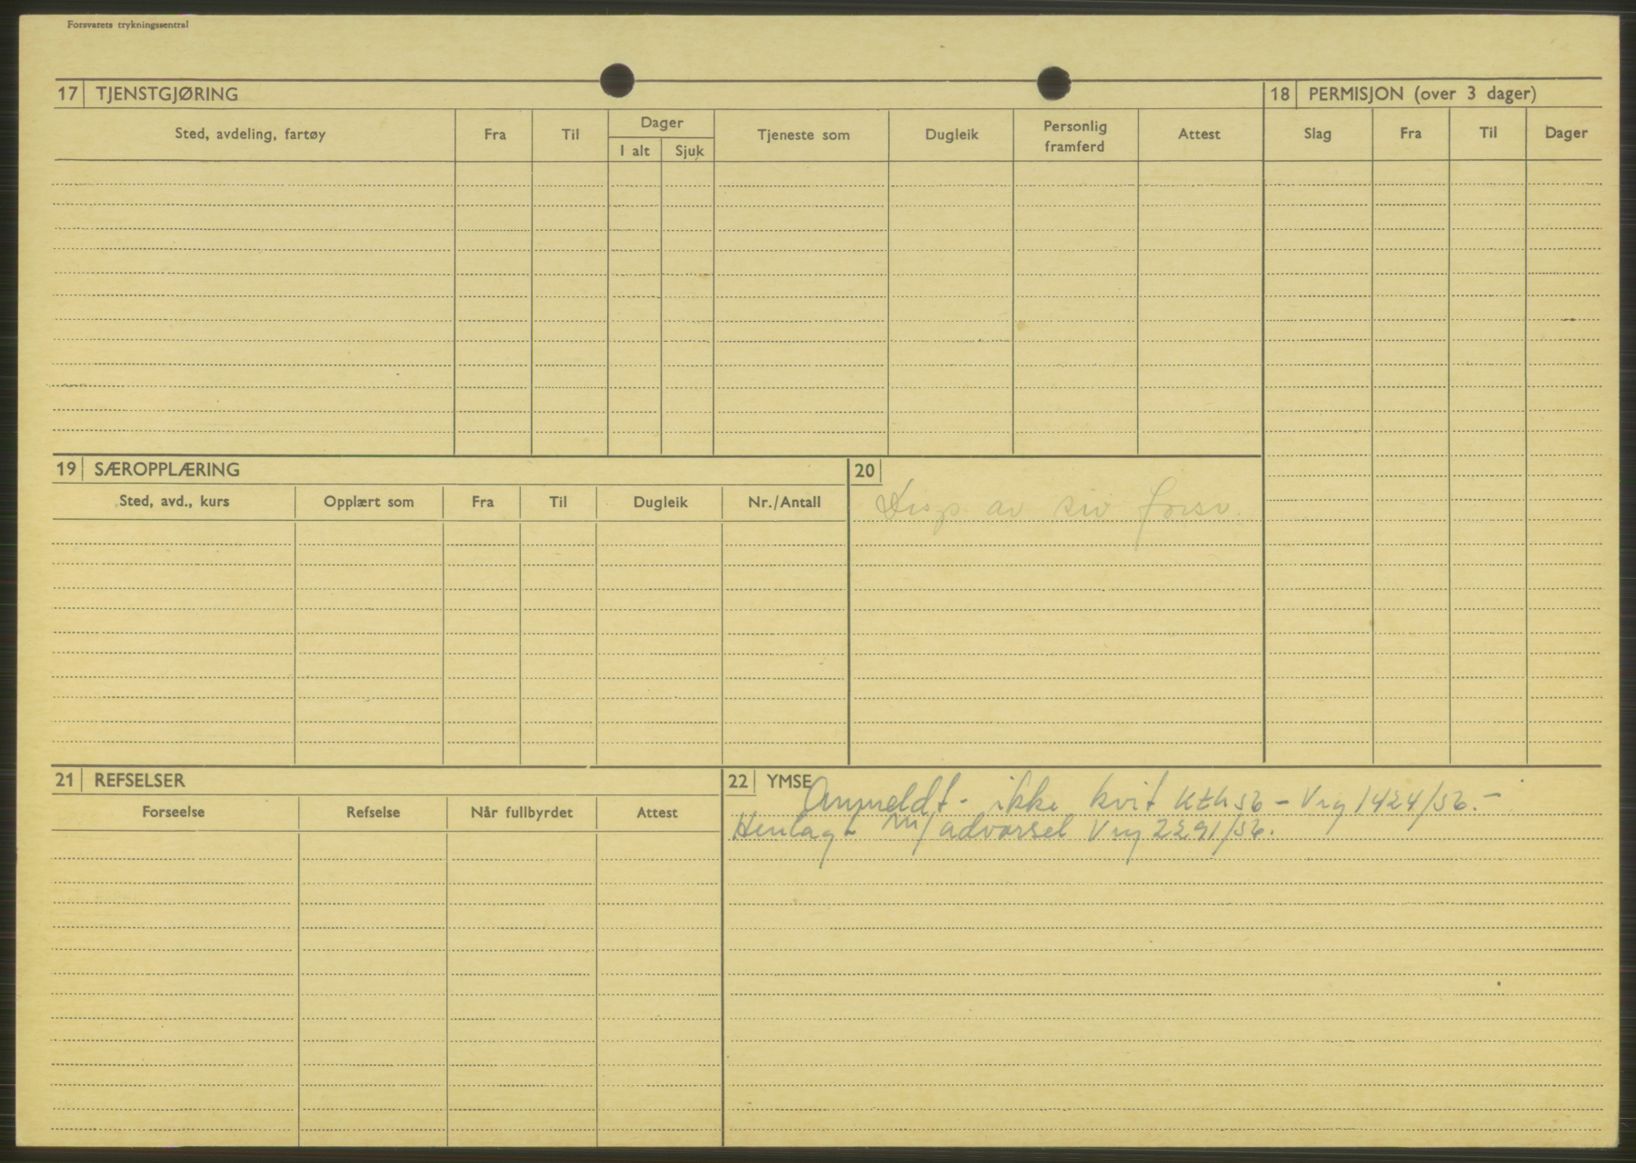 Forsvarets trykningssentral
17 TJENSTGJØRING
18 PERMISJON (over 3 dager)
Sted, avdeling, fartøy Fra Til Dager Tjeneste som Dugleik Personlig framferd Attest Slag Fra Til Dager
I alt Sjuk
19 SÆROPPLÆRING
20
Sted, avd., kurs Opplært som Fra Til Dugleik Nr./Antall
Disp av siv forsv.
21 REFSELSER
22 YMSE
Forseelse Refselse Når fullbyrdet Attest
Anmeldt - ikke kvit 56 - Vrg 1424/56. -
Henlagt m/ advarsel Vrg 2291/56.